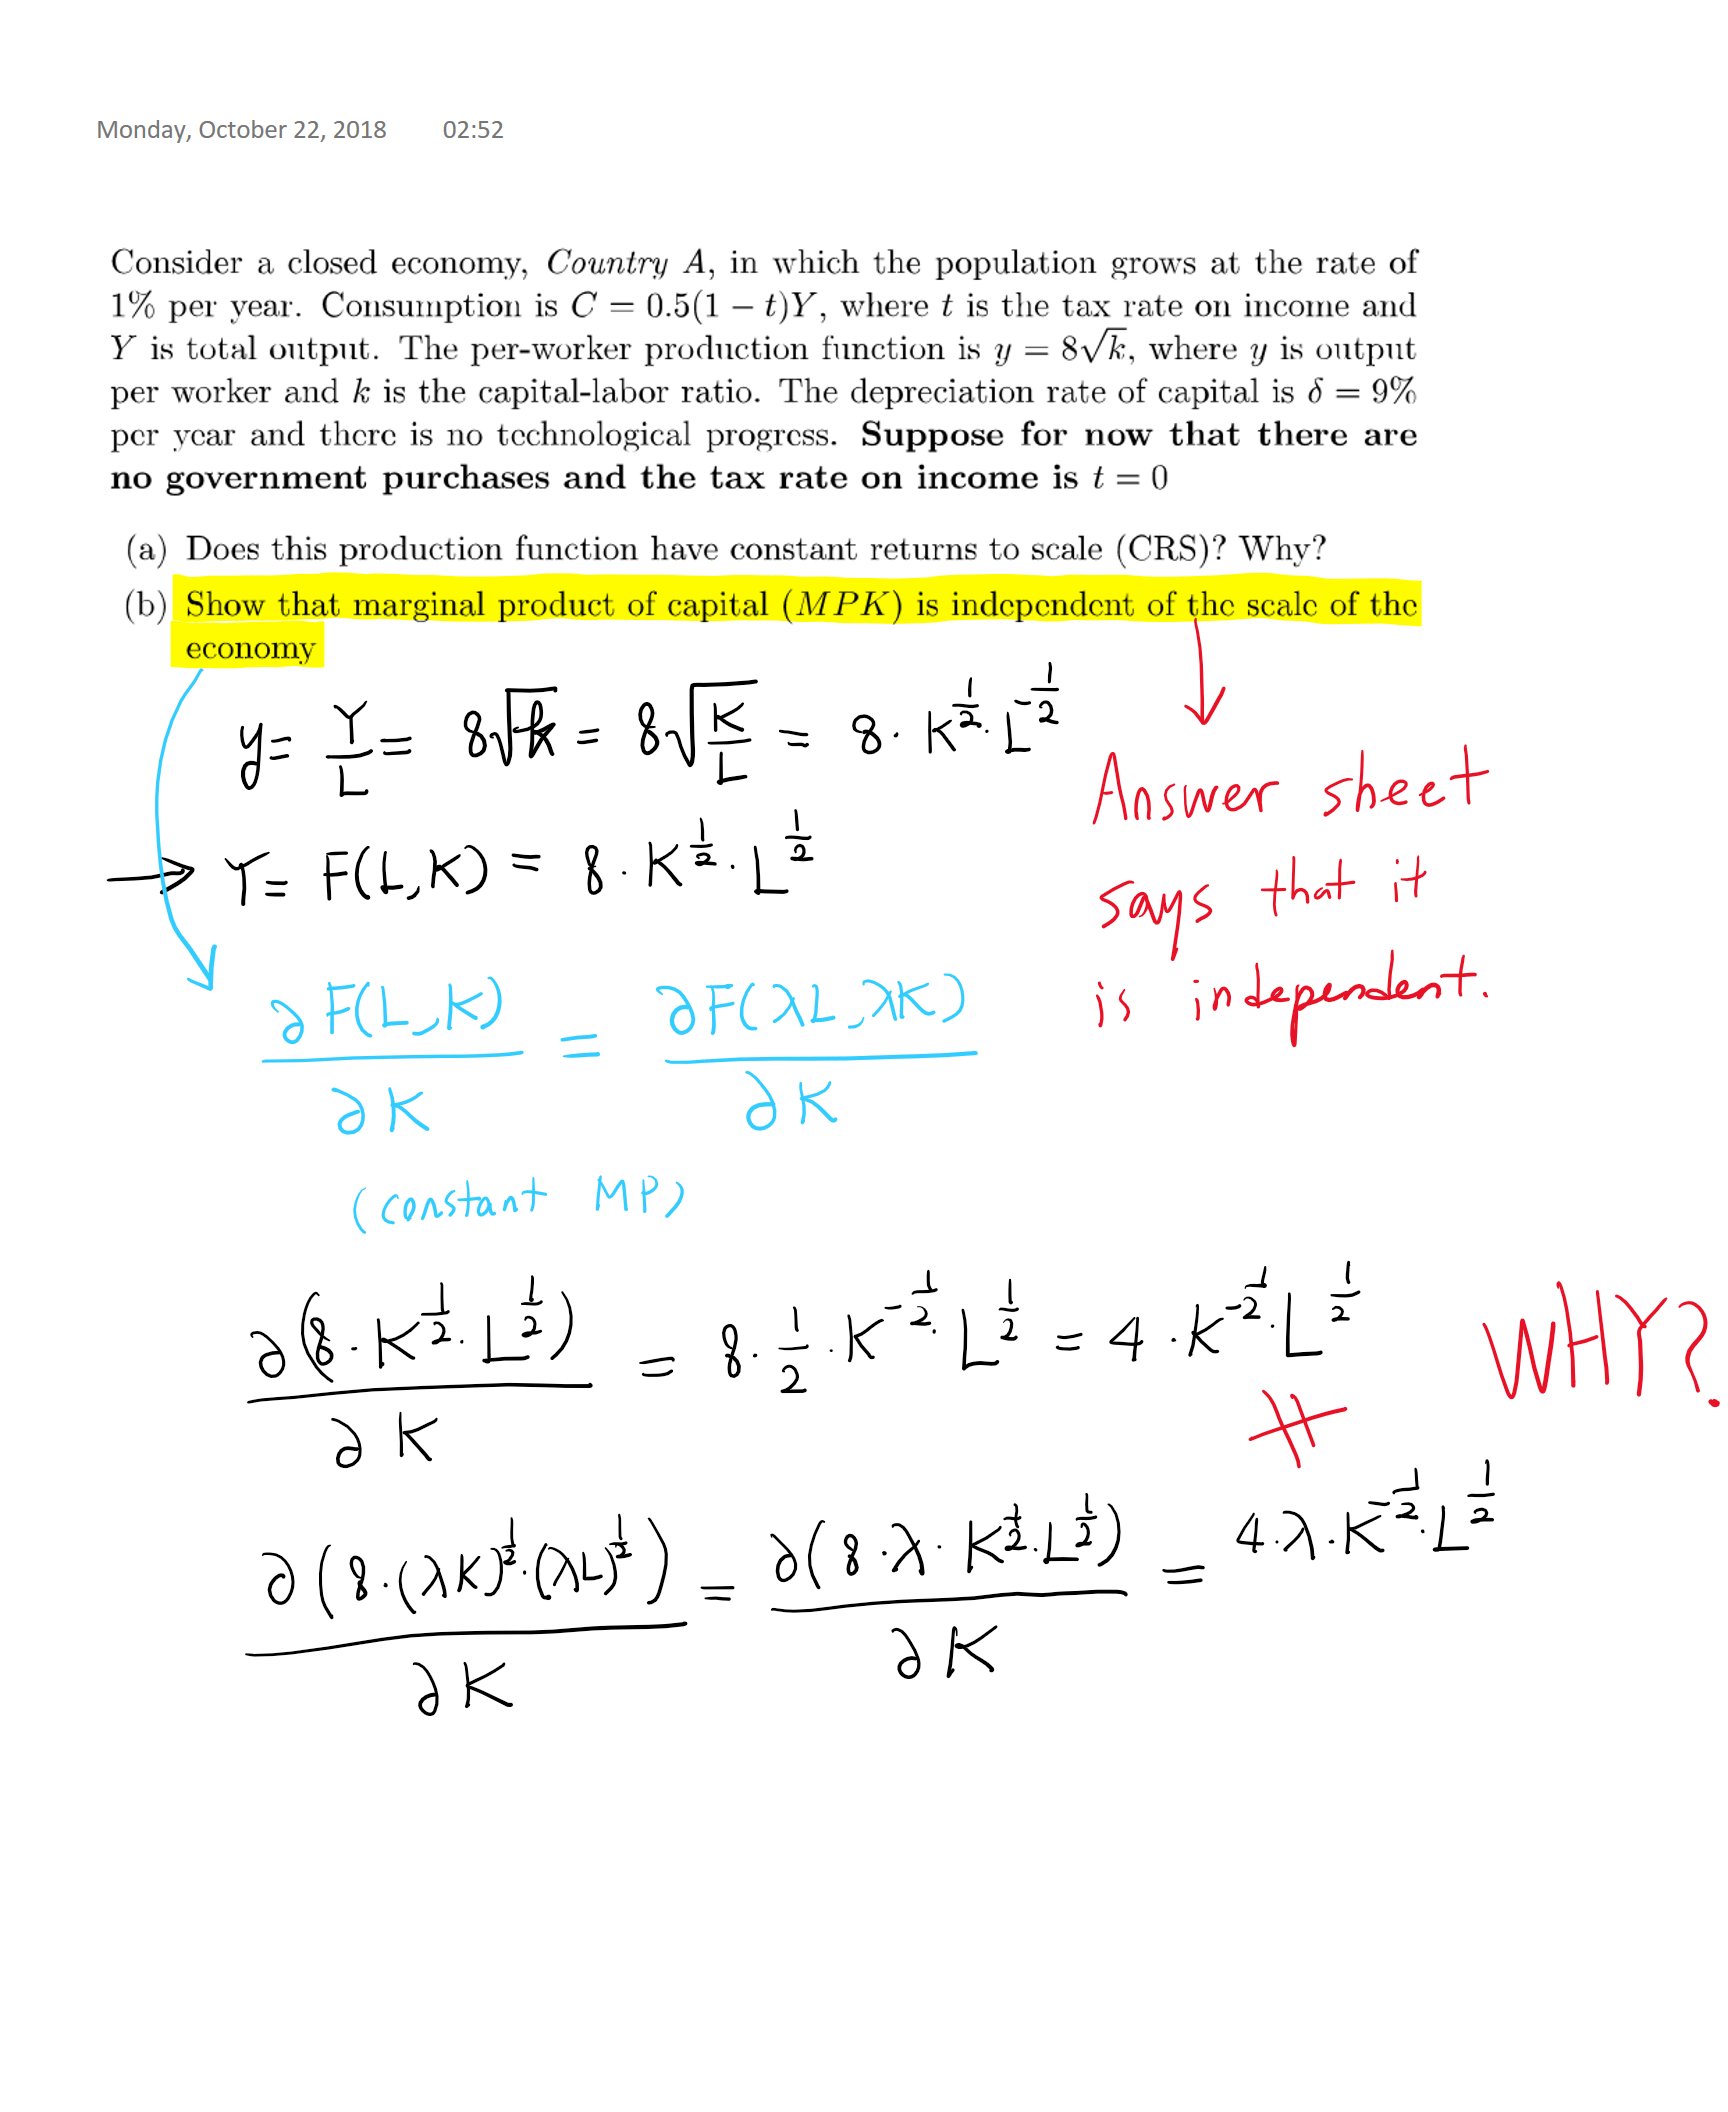 Monday, October 22, 2018 02:52
Consider a closed economy, Country A, in which the population grows at the rate of
1% per year. Consumption is C = 0.5(1 − t)Y, where t is the tax rate on income and
Y is total output. The per-worker production function is y = 8√k, where y is output
per worker and k is the capital-labor ratio. The depreciation rate of capital is δ = 9%
per year and there is no technological progress. Suppose for now that there are
no government purchases and the tax rate on income is t = 0
(a) Does this production function have constant returns to scale (CRS)? Why?
(b) Show that marginal product of capital (MPK) is independent of the scale of the
economy
y = Y/L = 8√k = 8√(K/L) = 8 · K^(1/2) · L^(-1/2)
→ Y = F(L, K) = 8 · K^(1/2) · L^(1/2)
Answer sheet
says that it
is independent.
∂F(L, K)/∂K = ∂F(λL, λK)/∂K
(constant MP)
∂(8 · K^(1/2) · L^(1/2))/∂K = 8 · 1/2 · K^(-1/2) · L^(1/2) = 4 · K^(-1/2) · L^(1/2)
≠
WHY?
∂(8 · (λK)^(1/2) · (λL)^(1/2))/∂K = ∂(8 · λ · K^(1/2) · L^(1/2))/∂K = 4 · λ · K^(-1/2) · L^(1/2)